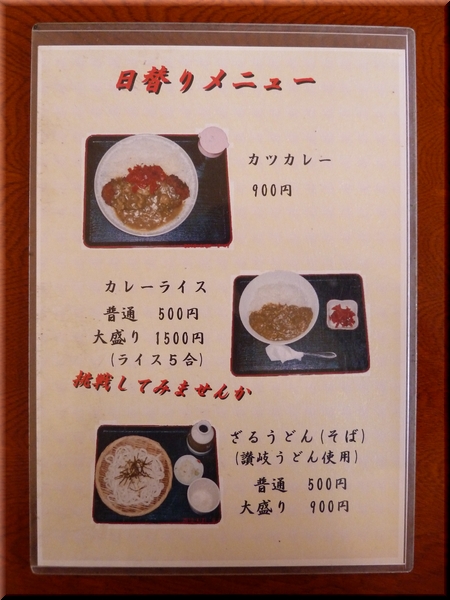 日替りメニュー
カツカレー
900円
カレーライス
普通 500円
大盛り 1500円
(ライス5合)
挑戦してみませんか
ざるうどん(そば)
(讃岐うどん使用)
普通 500円
大盛り 900円